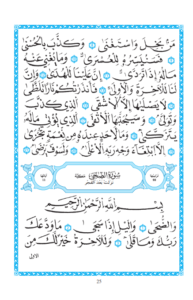 مَنْ بَخِلَ وَاسْتَغْنَىٰ وَكَذَّبَ بِالْحُسْنَىٰ
فَسَنُيَسِّرُهُ لِلْعُسْرَىٰ وَمَا يُغْنِي عَنْهُ
مَالُهُ إِذَا تَرَدَّىٰ إِنَّ عَلَيْنَا لَلْهُدَىٰ وَإِنَّ
لَنَا لَلْآخِرَةَ وَالْأُولَىٰ فَأَنْذَرْتُكُمْ نَارًا تَلَظَّىٰ
لَا يَصْلَاهَا إِلَّا الْأَشْقَى الَّذِي كَذَّبَ
وَتَوَلَّىٰ وَسَيُجَنَّبُهَا الْأَتْقَى الَّذِي يُؤْتِي مَالَهُ
يَتَزَكَّىٰ وَمَا لِأَحَدٍ عِنْدَهُ مِنْ نِعْمَةٍ تُجْزَىٰ
إِلَّا ابْتِغَاءَ وَجْهِ رَبِّهِ الْأَعْلَىٰ وَلَسَوْفَ يَرْضَىٰ
سُورَةُ الضُّحَىٰ مكية
نزلت بعد الفجر
بِسْمِ اللَّهِ الرَّحْمَٰنِ الرَّحِيمِ
وَالضُّحَىٰ وَاللَّيْلِ إِذَا سَجَىٰ مَا وَدَّعَكَ
رَبُّكَ وَمَا قَلَىٰ وَلَلْآخِرَةُ خَيْرٌ لَكَ مِنَ
الأولى
25